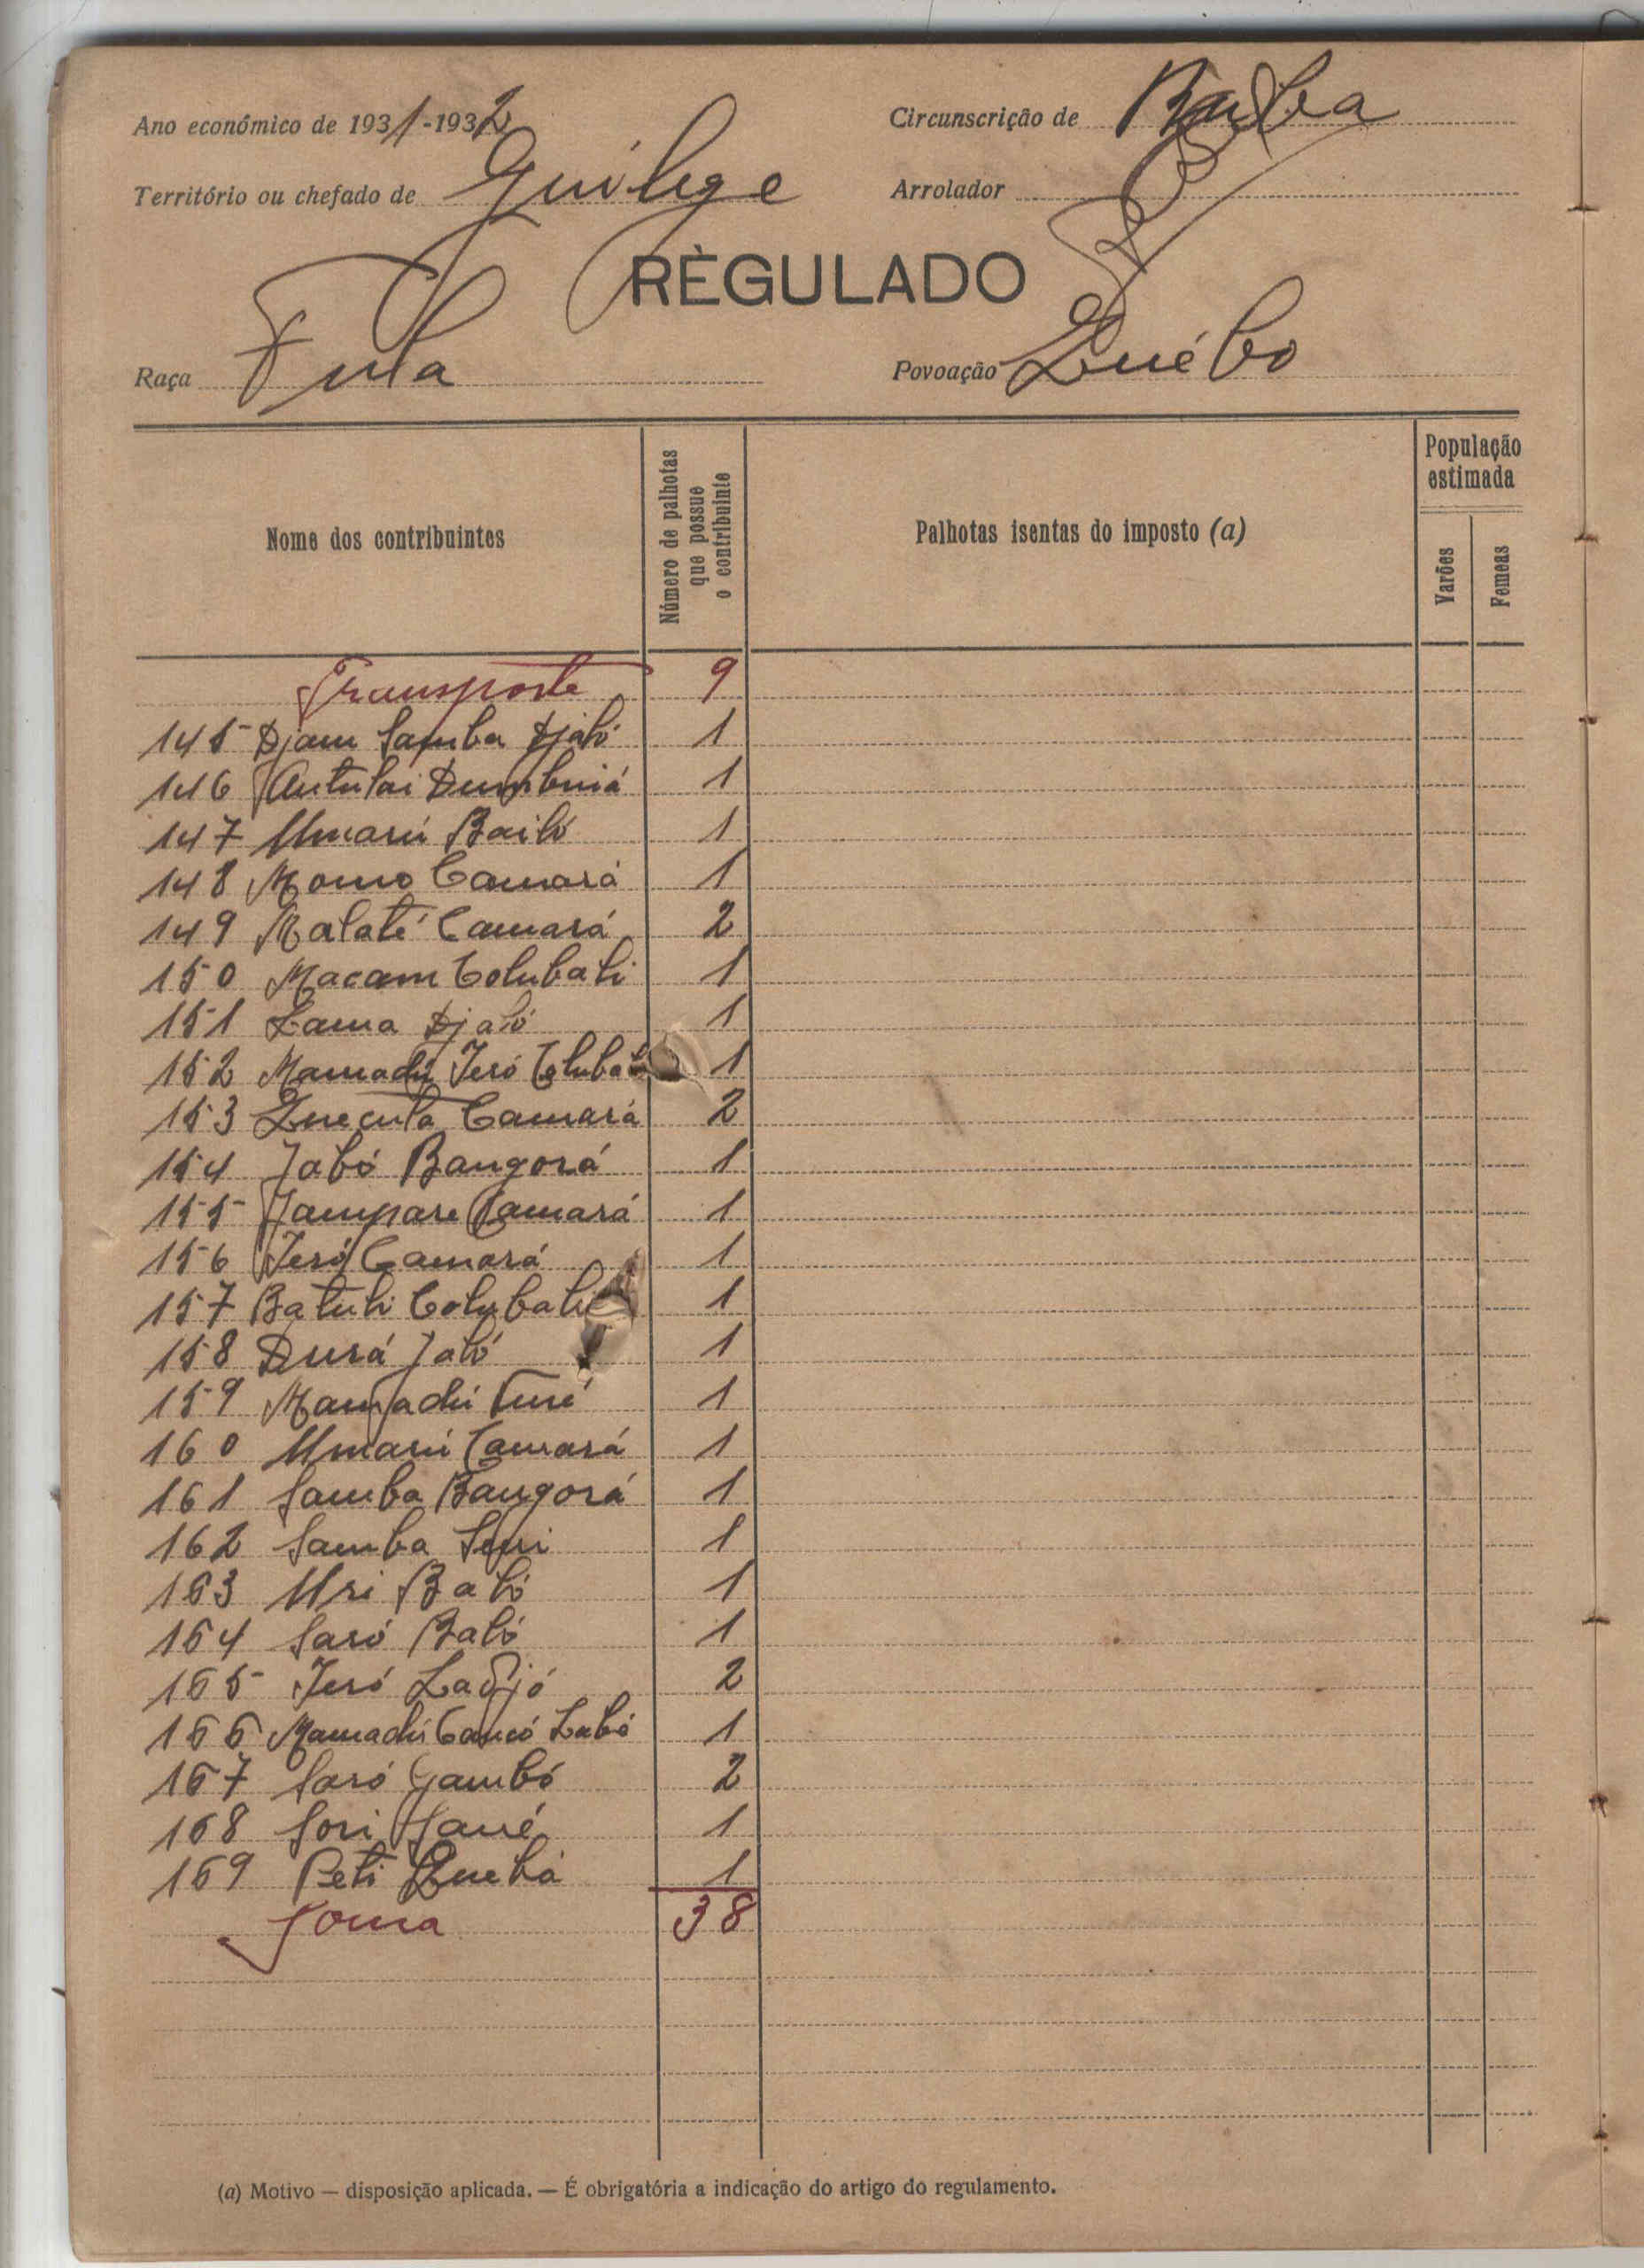 Ano económico de 1931-1932
Circunscrição de Buba
Território ou chefado de Guilege
Arrolador
REGULADO
Raça Fula
Povoação Québo
Nome dos contribuintes
Número de palhotas que possue o contribuinte
Palhotas isentas do imposto (a)
População estimada
Varões
Femeas
Transporte 9
145 Djam Samba Djaló 1
146 Antulai Dumbuiá 1
147 Umarú Bailó 1
148 Momo Camará 1
149 Malaté Camará 2
150 Macam Colubali 1
151 Lama Djaló 1
152 Mamadú Jeró Colubali 1
153 Quecuta Camará 2
154 Jabó Bangorá 1
155 Jampare Camará 1
156 Jeró Camará 1
157 Batuli Colubali 1
158 Durá Jaló 1
159 Mamadú Turé 1
160 Umarú Camará 1
161 Samba Bangorá 1
162 Samba 1
163 Uri Baló 1
164 Saró Baló 1
165 Jeró Ladjó 2
166 Mamadú Labó 1
167 Saró Gambó 2
168 Sori Sané 1
169 Peti Quebá 1
Soma 38
(a) Motivo — disposição aplicada. — É obrigatória a indicação do artigo do regulamento.